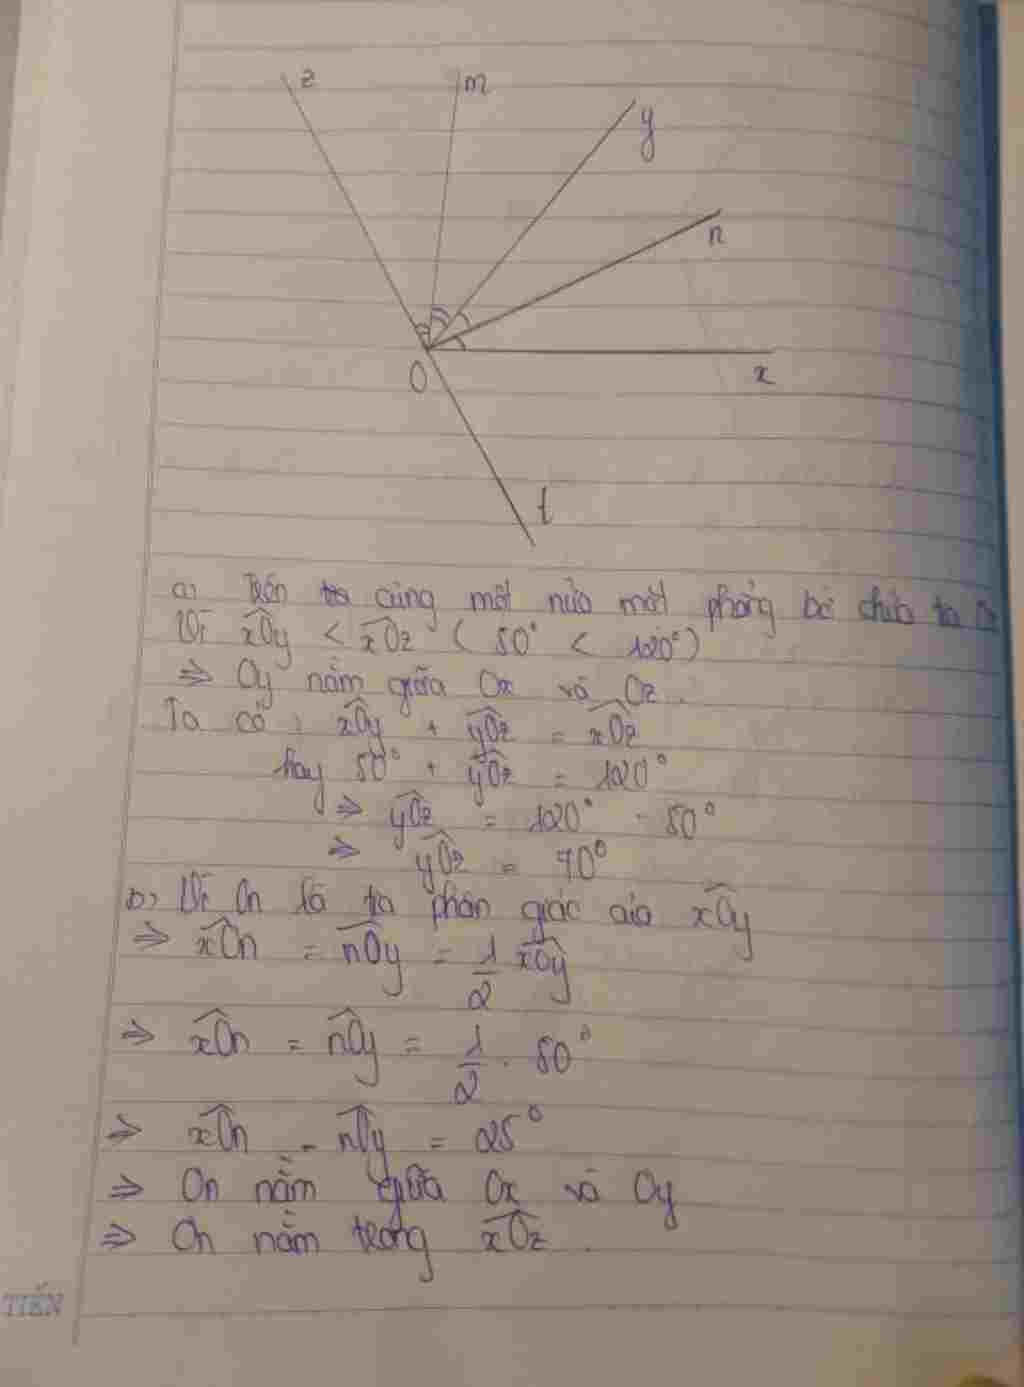 z
m
y
n
O
x
t
a) Trên cùng một nửa mặt phẳng bờ chứa tia Ox
Vì xOy < xOz ( 50° < 120°)
=> Oy nằm giữa Ox và Oz.
Ta có : xOy + yOz = xOz
hay 50° + yOz = 120°
=> yOz = 120° - 50°
=> yOz = 70°
b) Vì On là tia phân giác của xOy
=> xOn = nOy = 1/2 xOy
=> xOn = nOy = 1/2 . 50°
=> xOn = nOy = 25°
=> On nằm giữa Ox và Oy
=> On nằm trong xOz.
TIẾN